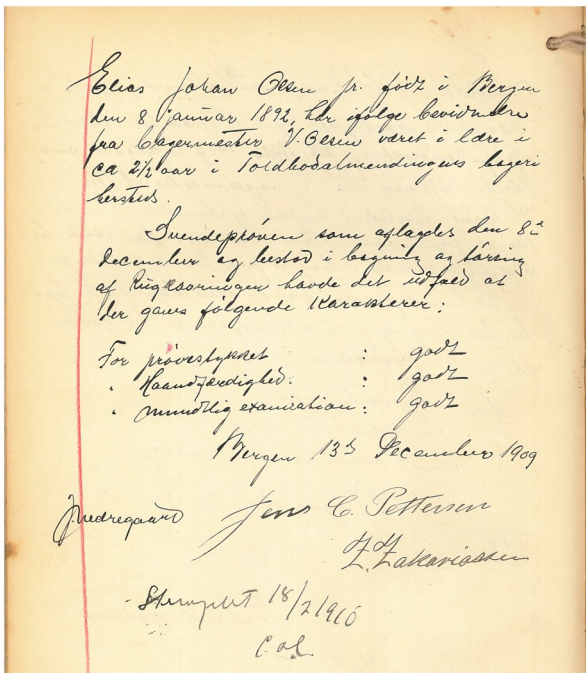 Elias Johan Olsen jr. født i Bergen
den 8 januar 1892, har ifølge bevidnelse
fra bagermester V. Olsen været i lære i
ca 2½ aar i Toldbodalmendingens bageri
hersteds.
Svendeprøven som aflagdes den 8de
december og bestod i bagning og
af havde det udfald at
der gaves følgende Karakterer:
For prøvestykket : godt
" Haandfærdighed : godt
" mundtlig examination : godt
Bergen 13de December 1909
Jens C. Pettersen
Z. Zakariassen
Stemplet 18/2 1910